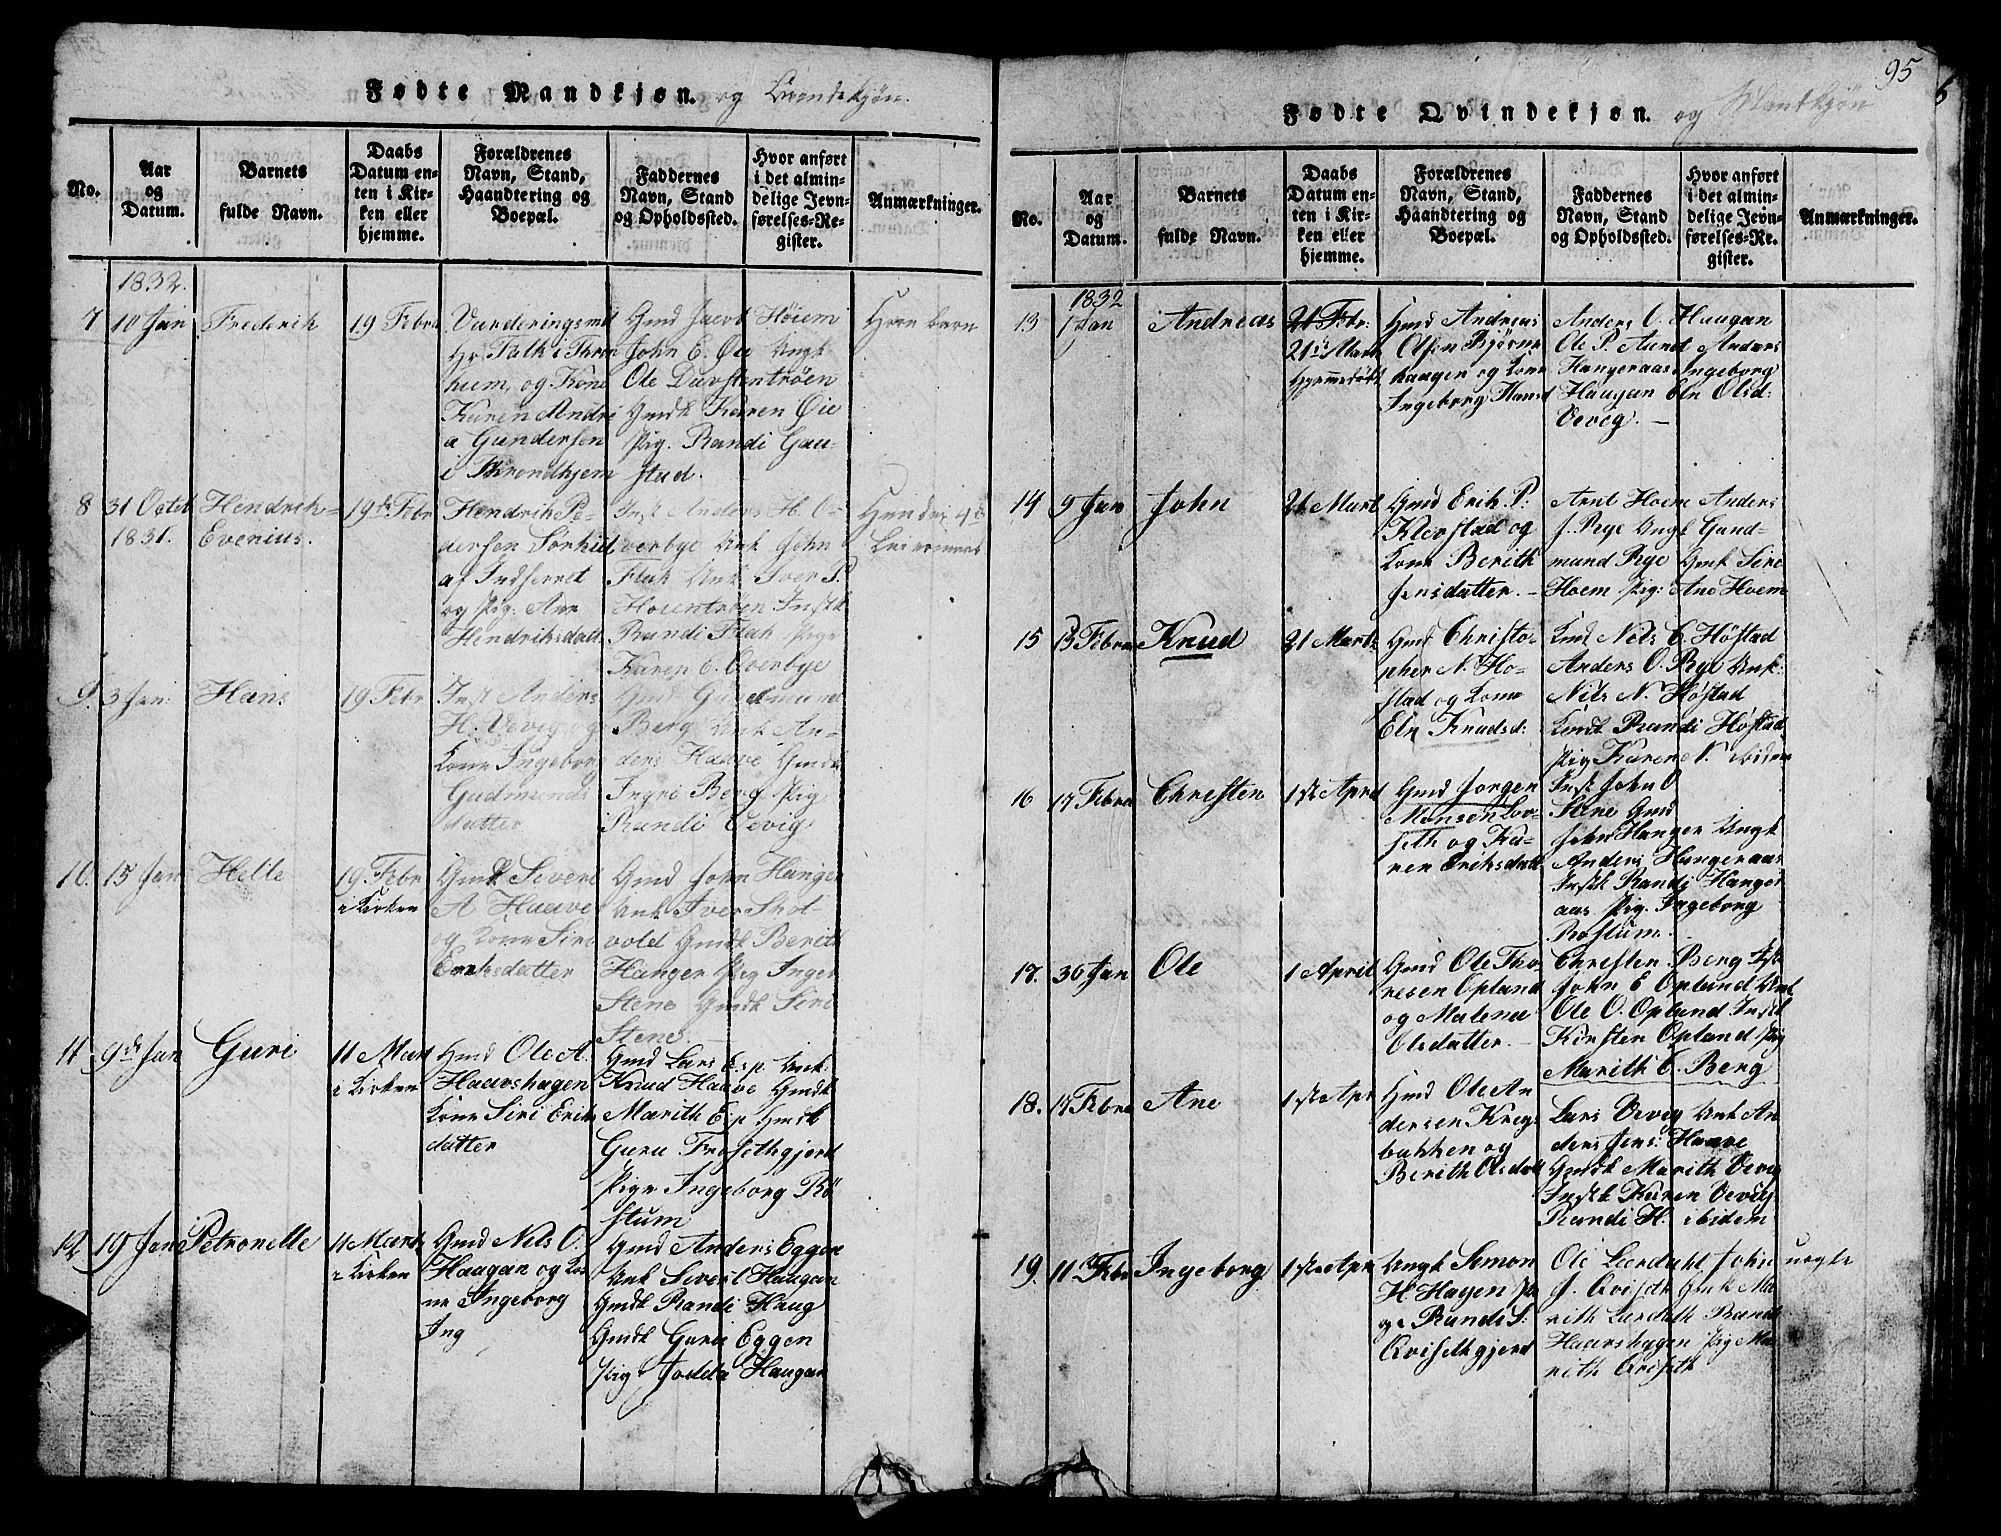 Fødte Mandkjøn. og Qvindekjøn.
No.
Aar
og
Datum.
Barnets
fulde Navn.
Daabs
Datum en-
ten i Kir-
ken eller
hjemme.
Forældrenes
Navn, Stand,
Haandtering og
Boepæl.
Faddernes
Navn, Stand
og Opholdssted.
Hvor anført
i det almin-
delige Jevn-
førelses-Re-
gister.
Anmærkninger.
1832.
7
10 Jan
Frederik
19 Febr
Vurderingsmd
Hr. Falk i Thron
hiem, og Kone
Karen Andri
a Gundersen
i Throndhjem
Gmd Jacob Høiem
John E. Øie Ungk
Ole Duvstentrøen
Gmdk Karen Øie
Pig. Randi Gau-
stad.
Horebarn
8
31 Octob
1831.
Hendrik
Evenius.
19de Febr
Hendrik Pe-
dersen Sorkid
af Indherret
og Pig: Ane
Hendriksdatt
Inst Anders H. O-
verbye Unk John
Flak Unk Iver P.
Hoientrøen Instk
Randi Flak Pige
Karen E. Overbye
Hendes 4de
Leiermaal
9.
3 Jan:
Hans
19 Febr
Inst Anders
H. Vevig og
Kone Ingeborg
Gudmunds
datter
Gmd Gudmund
Berg Unk An-
ders Haave Gmdk
Ingri Berg Pig
Randi Vevig
10.
15 Jan
Helle
19 Febr
i Kirken
Gmd Sivert
A Haave
og Kone Siri
Eriksdatter
Gmd John Hanger
Unk Iver Skot-
vold Gmdk Berith
Hanger Pig Inger
Stene Gmdk Siri
Stene
11
9de Jan
Guri
11 Mart
i Kirken
Gmd Ole A.
Haavshagen
Kone Siri Eriks
datter
Gmd Lars Esp Unk
Knud Haave Gmdk
Marith Esp Gmdk
Guru Frosethgjerd
Pige Ingeborg Rø
stum
12
19 Jan
Petronelle
11 Mart
i Kirken
Gmd Nels O.
Haagan og Ko
ne Ingeborg
Ing
Gmd Anders Eggen
Unk Sivert Haagan
Gmdk Randi Haug
Gmdk Guru Eggen
Pig Jodda Haugan
95
6
Fødte Qvindekjøn. og Mandkjøn
No.
Aar
og
Datum.
Barnets
fulde Navn.
Daabs
Datum en-
ten i Kir-
ken eller
hjemme.
Forældrenes
Navn, Stand,
Haandtering og
Boepæl.
Faddernes
Navn, Stand
og Opholdssted.
Hvor anført
i det almin-
delige Jevn-
førelses-Re-
gister.
Anmærkninger.
1832
13
1 Jan
Andreas
21 Febr:
21de Mart
hjemmedøbt
Gmd Andreas
Olsen Bjørne
haagen og Kone
Ingeborg Hansd
Anders O. Haugan
Ole P. Aunet Anders
Hangeraas Ingeborg
Haugan Eln Olsd:
Vevig. —
14
9 Jan
John
21 Mart
Gmd Erik P.
Klevstad og
Kone Berith
Jensdatter. —
Arnt Hoem Anders
J. Rye Ungk Gund-
mund Rye Gmk Siri
Hoem Pig: Ane Hoem
15
15 Febr
Knud
21 Mart
Gmd Christo-
pher N. Ho-
stad og Kone
Eln Knudsd:
Kmd Nels C Høstad
Anders O. Rye Unk:
Nils N. Høstad
Kmdk Randi Høstad
Pig Karen N. ibidem
16
17 Febr
Christen
1ste April
Gmd Jorgen
Monsen Lor-
seth og Ka-
ren Eriksdatt
Inst John O
Stene Gmd
John Hanger Ungk
Anders Hangeraas
Instk Randi Hanger
aas Pig. Ingeborg
Røstum. —
17.
30 Jan
Ole
1 April
Gmd Ole Tho-
resen Opland
og Malena
Olsdatter. —
Christen Berg Inst
John E Opland Unk
Ole O. Opland Instk
Kirsten Opland Pig
Marith C. Berg
18.
17 Febr
Ane
1ste Apr
Gmd Ole An
dersen Krigs
bakken og
Berith Olsdatt
Lars Vevig Unk An
ders Jens: Haave
Gmdk Marith Vevig
Instk Karen Vevig
Randi H. ibidem
19.
11 Febr
Ingeborg
1ste Apr
Ungk Simon
H. Hagen Pi
ge Randi S:
Qvisethgjerd
Ole Lierdahl John
J. Qviseth Gmk Ma
rith Lierdahl Randi
Haavshagen Pig Ma
rith Qviseth
uegte